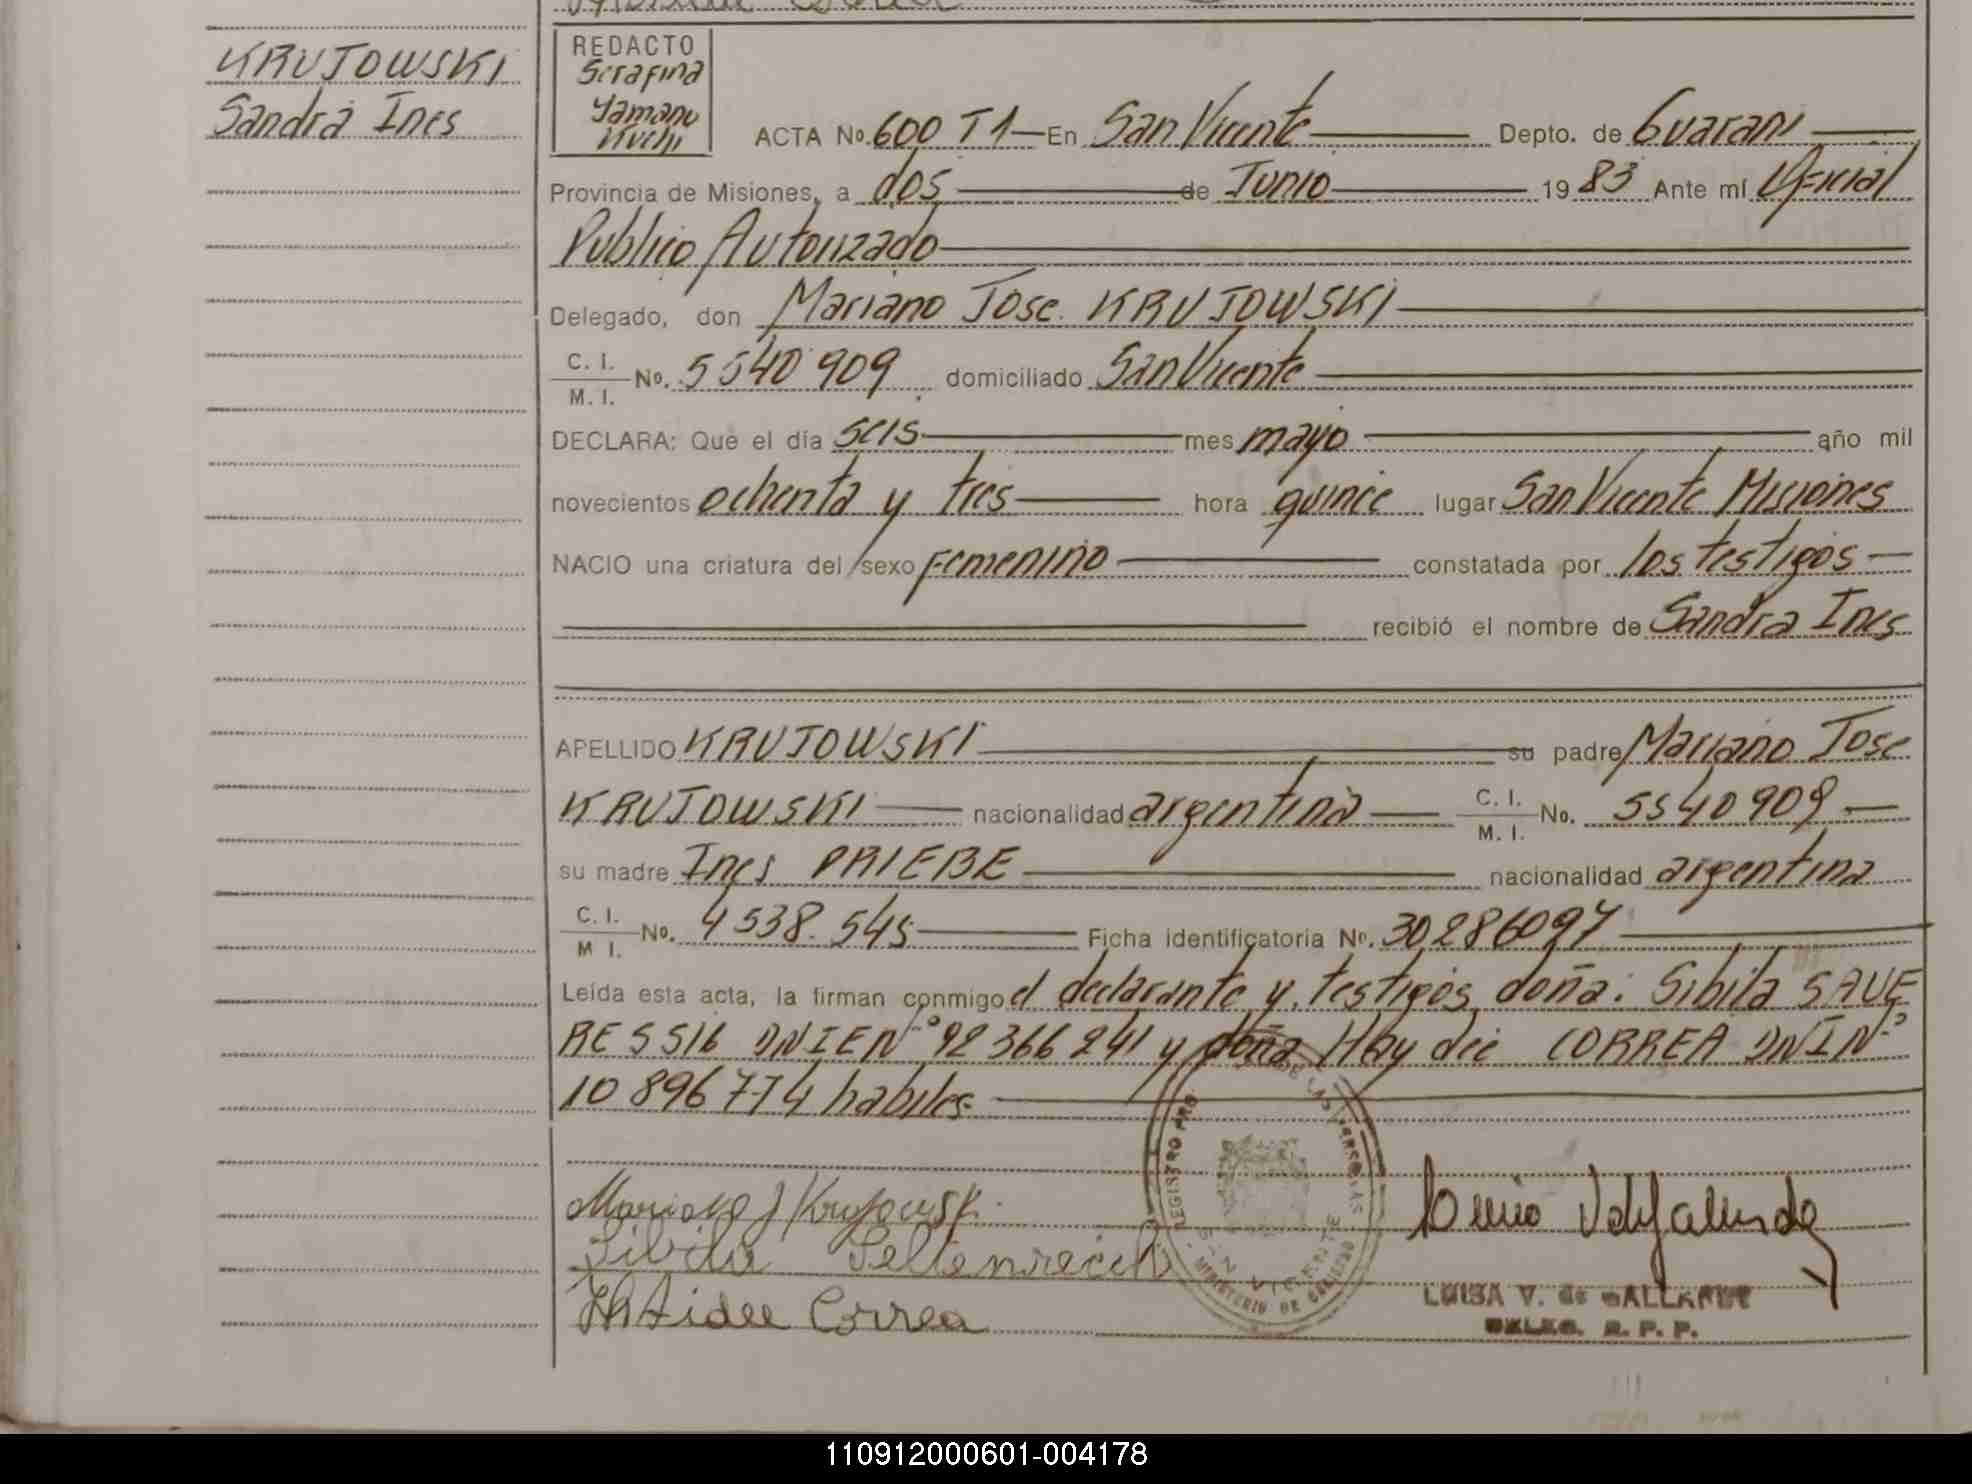 KRUJOWSKI
Sandra Ines
REDACTO
Serafina
Yamano
Kuchi
ACTA No. 600 T1 En San Vicente Depto. de Guarani
Provincia de Misiones, a dos de Junio 19 83 Ante mí Oficial
Publico Autorizado
Delegado, don Mariano Jose KRUJOWSKI
C. I. / M. I. No. 5540 909 domiciliado San Vicente
DECLARA: Que el día seis mes mayo año mil
novecientos ochenta y tres hora quince lugar San Vicente Misiones
NACIO una criatura del sexo Femenino constatada por los testigos
recibió el nombre de Sandra Ines
APELLIDO KRUJOWSKI su padre Mariano Jose
KRUJOWSKI nacionalidad argentina C. I. / M. I. No. 5540909
su madre Ines PRIEBE nacionalidad argentina
C. I. / M I. No. 4538.545 Ficha identificatoria No. 30286097
Leída esta acta, la firman conmigo el declarante y testigos doña: Sibila SAUE
RESSIG DNIE N° 92366241 y doña Haydee CORREA DNI N°
10 896 774 habiles
REGISTRO PRO. DE LAS PERSONAS
SAN VICENTE
MINISTERIO DE GOBIERNO
Mariano J Krujowski
Sibila
Haidee Correa
LUISA V. de GALLARDO
DELEG. R. P. P.
110912000601-004178